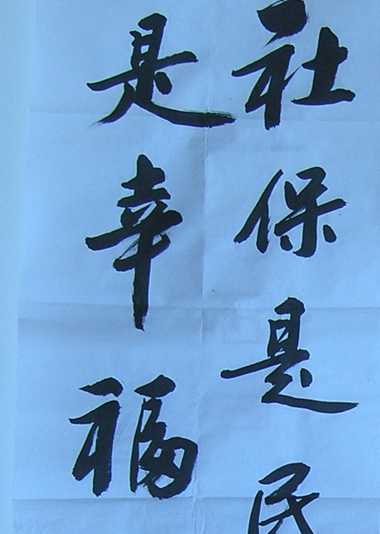 社保是民
是幸福